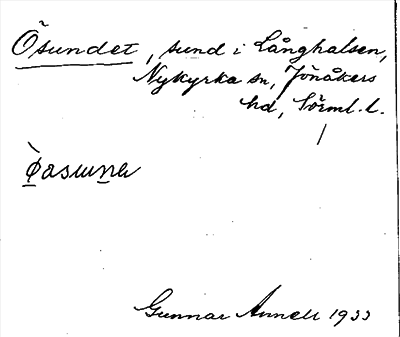 Ösundet, sund i Långhalsen,
Nykyrka sn, Jönåkers
hd, Sörml. l.
Gunnar Annell 1933